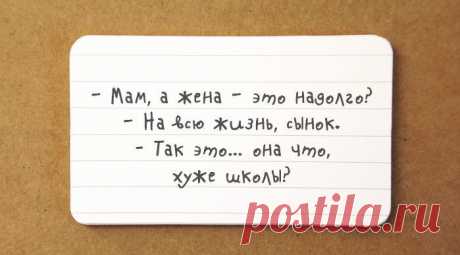 - Мам, а жена - это надолго?
- На всю жизнь, сынок.
- Так это... она что,
хуже школы?
postila.ru